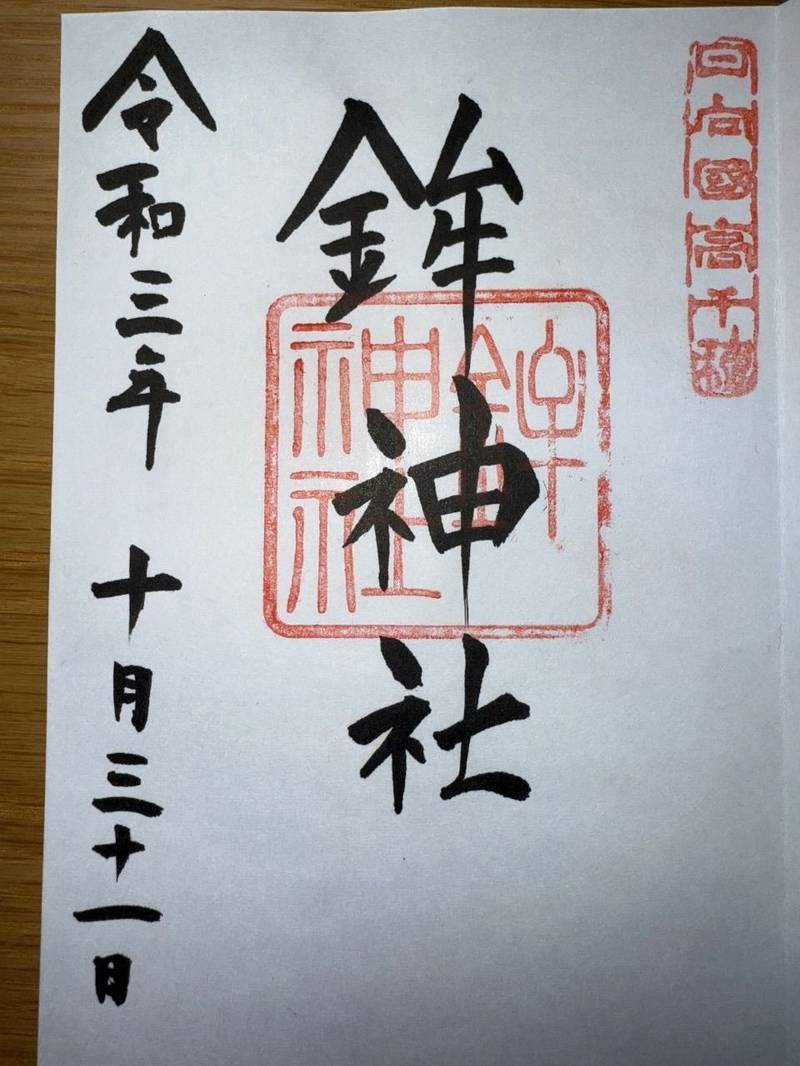 日向國高千穂
鉾神社
鉾神社
令和三年 十月三十一日